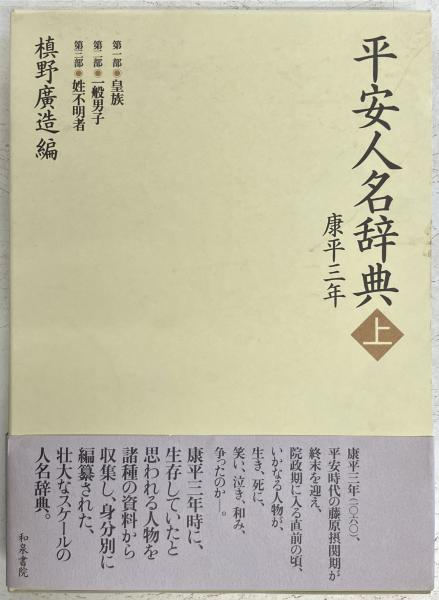 平安人名辞典
康平三年
上
第一部●皇族
第二部●一般男子
第三部●姓不明者
槙野廣造編
康平三年(一〇六〇)、
平安時代の藤原摂関期が
終末を迎え、
院政期に入る直前の頃、
いかなる人物が、
生き、死に、
笑い、泣き、和み、
争ったのか―。
康平三年時に、
生存していたと
思われる人物を
諸種の資料から
収集し、身分別に
編纂された、
壮大なスケールの
人名辞典。
和泉書院